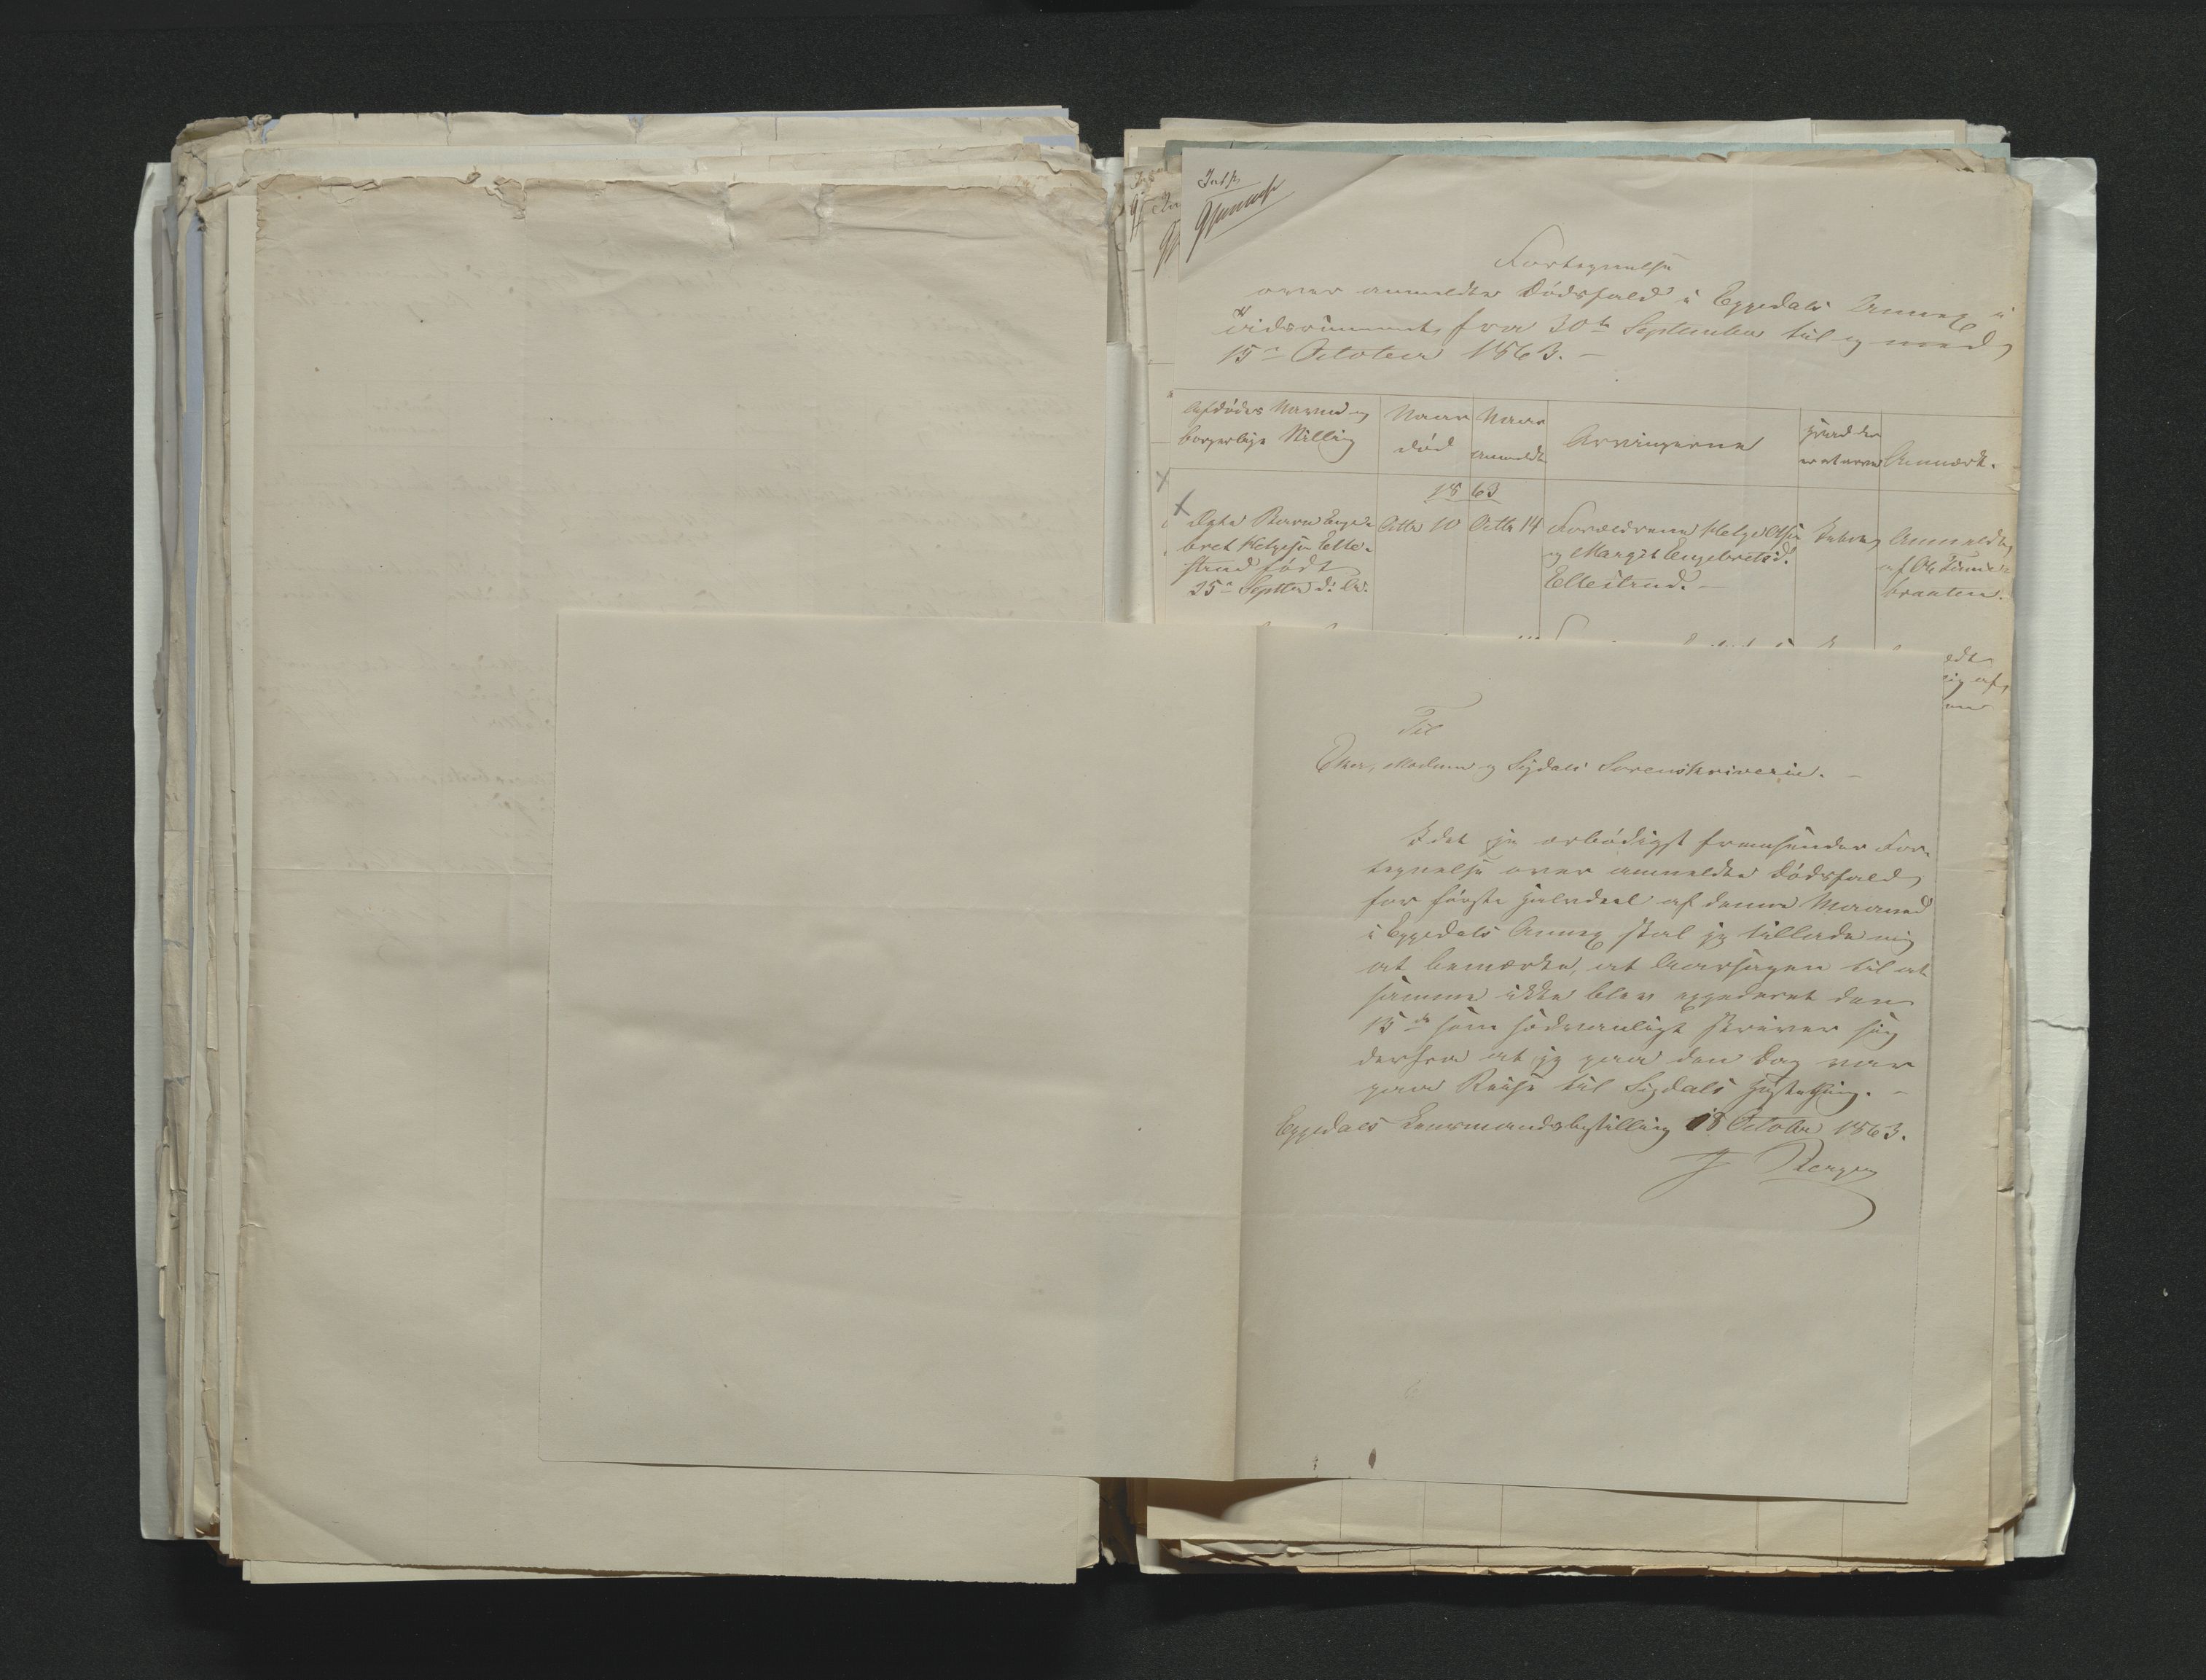 Fortegnelse
over anmeldte Dödsfald i Eggedals Annex i
Tidsrummet fra 30te September til og med
15de October 1863. –
Afdödes Navn og
borgerlige Stilling
Naar
död
Naar
anmeldt
Arvingerne
Anmærk.
1863
Barn Enge-
bret Helgesen Elle-
strud födt
25de Septbr d. A.
Octbr 10
Octbr 14
Forældrene Helge Olsen
og Margit Engebretsd.
Ellestrud. –
Anmeldt
af Ole
braaten.
Til
Eker, Modum og Sigdals Sorenskriverie. –
Idet jeg ærbödigst fremsender For-
tegnelse over anmeldte Dödsfald
for förste Halvdeel af denne Maaned
i Eggedals Annex skal jeg tillade mig
at bemærke, at Aarsagen til at
samme ikke blev expederet den
15de som sædvanligt skriver sig
derfra at jeg paa den Dag var
paa Reise til Sigdals Höstething. –
Eggedals Lensmandsbestilling 18 October 1863.